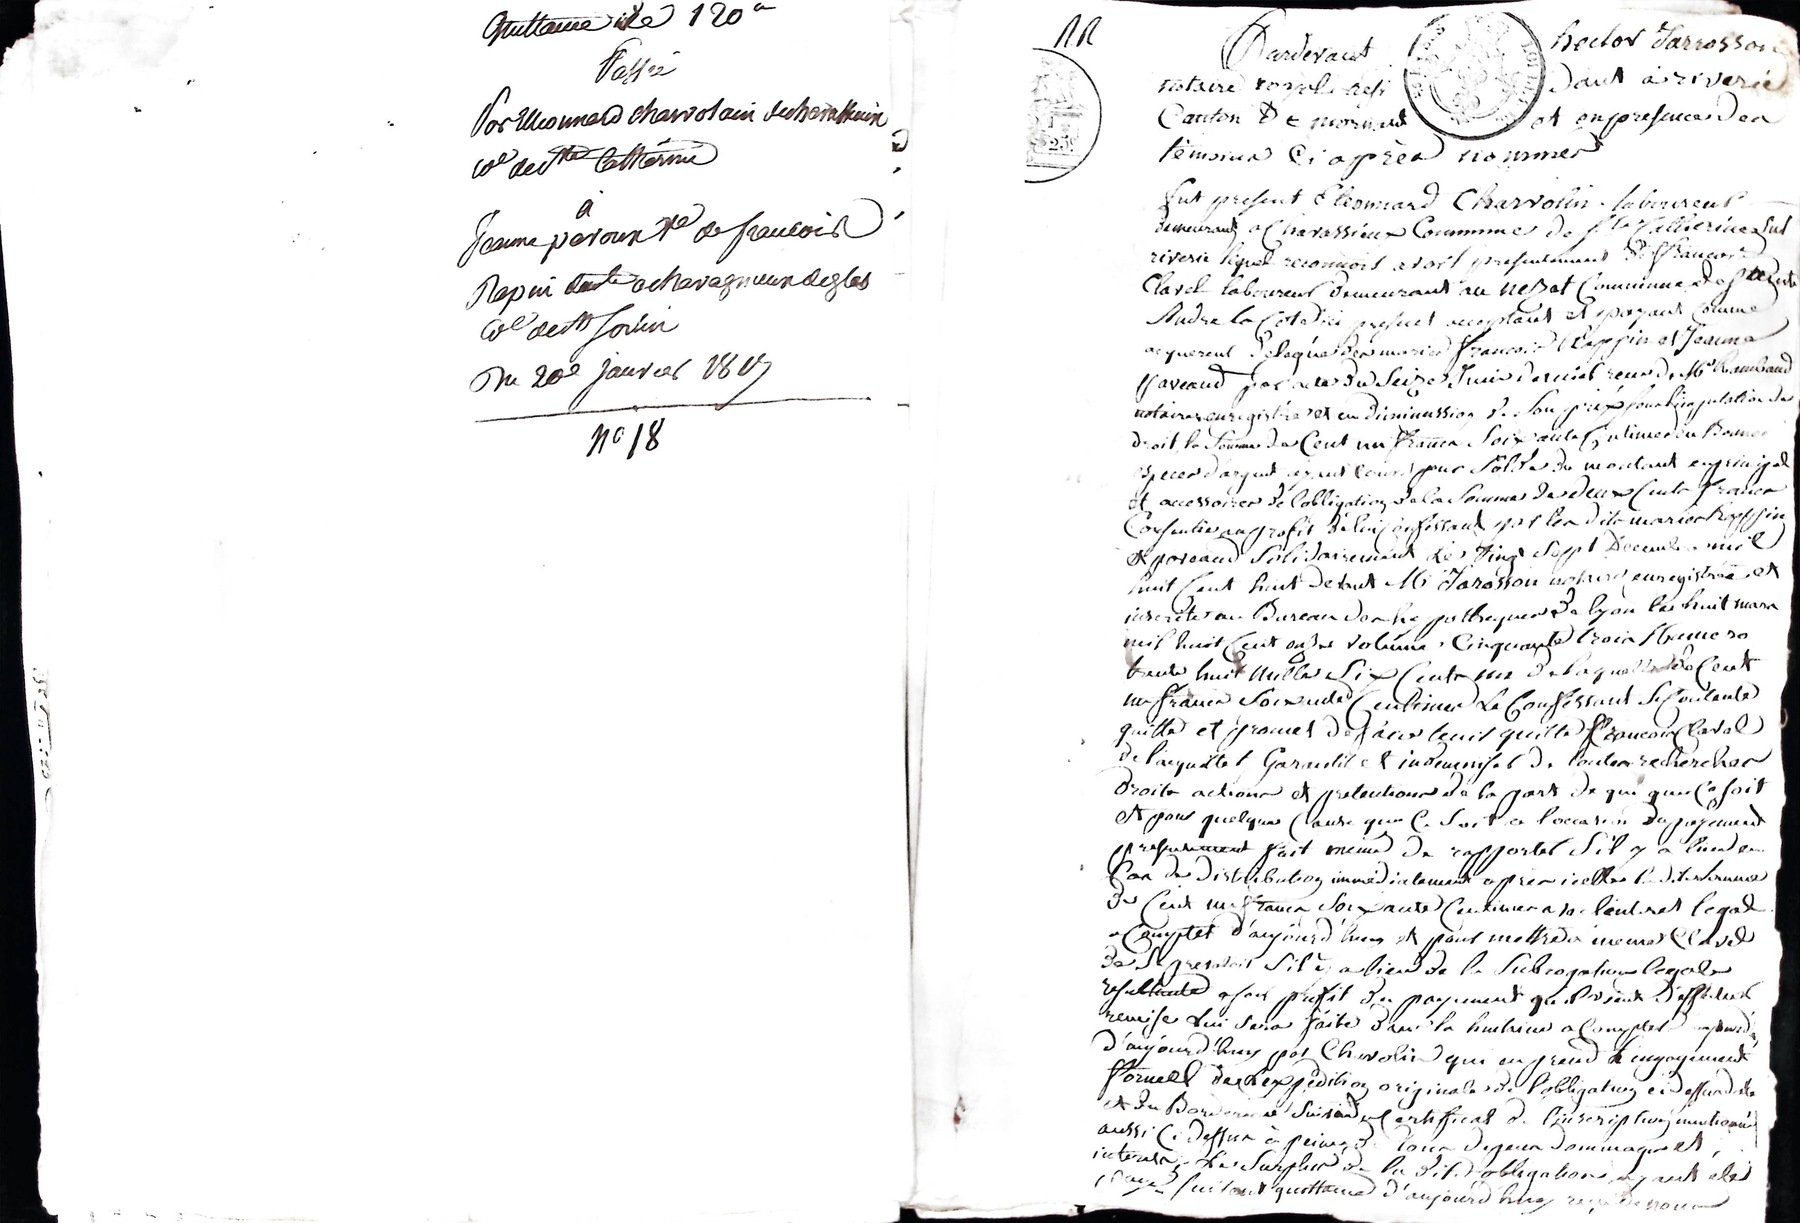 Quittance de 120 fr
Passée
Par Eleonnard charvolain de charassieux
Cne de Ste Catherine
à
Jeanne paroux Ve de francois
Rapin dte a chavagnieux
Cne de St Sorlin
Du 20e janvier 1817
no 18
Pardevant hector Jarrosson
notaire royal resi dant à riverie
Canton De mornant et en presence des
témoins Ci après nommés
fut présent Eleonnard Charvolin laboureur
demeurant a Charassieux Commune de Ste Catherine sur
riverie lequel reconnoit avoir presentement de francois
Clavel laboureur demeurant au Commune de St
André la Cote ici present acceptant et payant comme
acquereur des mariés francois Rappin et Jeanne
paveaud par acte du Seize Juin dernier recu de Me Rambaud
notaire enregistré et en diminussion de Son prix
droit la Somme de Cent un francs Soixante Centimes en bonnes
especes d'argent ayant cours pour Solde du montant en principal
et accessoires de l'obligation de la Somme de deux Cents francs
Consentie au profit du Confessant par les dits mariés Rappin
et paveaud Solidairement le vingt Sept Décembre mil
huit Cent huit devant Me Jarosson notaire enregistrée et
inscrite au Bureau des hypothèques de lyon le huit mars
mil huit Cent onze volume Cinquante trois Numero
trente huit mille Six Cents un de laquelle de Cent
un francs Soixante Centimes Le Confessant Se Contente
quitte et promet de faire tenir quitte francois Clavel
de l'acquitter Garantir et indemniser de toutes recherches
droits actions et pretentions de la part de qui que Ce soit
et pour quelque Cause que Ce Soit a l'occasion du payement
presentement fait même de rapporter S'il y a lieu en
Cas de distribution immédiatement après icelle la dite Somme
de Cent un francs Soixante Centimes a l'interet legal
a Compter d'aujourd'huy et pour mettre a meme Clavel
de Se prevaloir S'il y a lieu de la Subrogation legale
resultante a son profit du payement qu'il vient d'effectuer
remise lui Sera faite dans la huitaine a Compter
d'aujourd'huy par Charvolin qui en prend l'engagement
formel de l'expédition originale de l'obligation ci dessus
et du Bordereau Suivi du Certificat de l'inscription mentionné
aussi Ci dessus à peine de tous depens dommages et
interets, Le Surplus de la dite obligation ayant été
payé Suivant quittance d'aujourd'huy reçu de nous